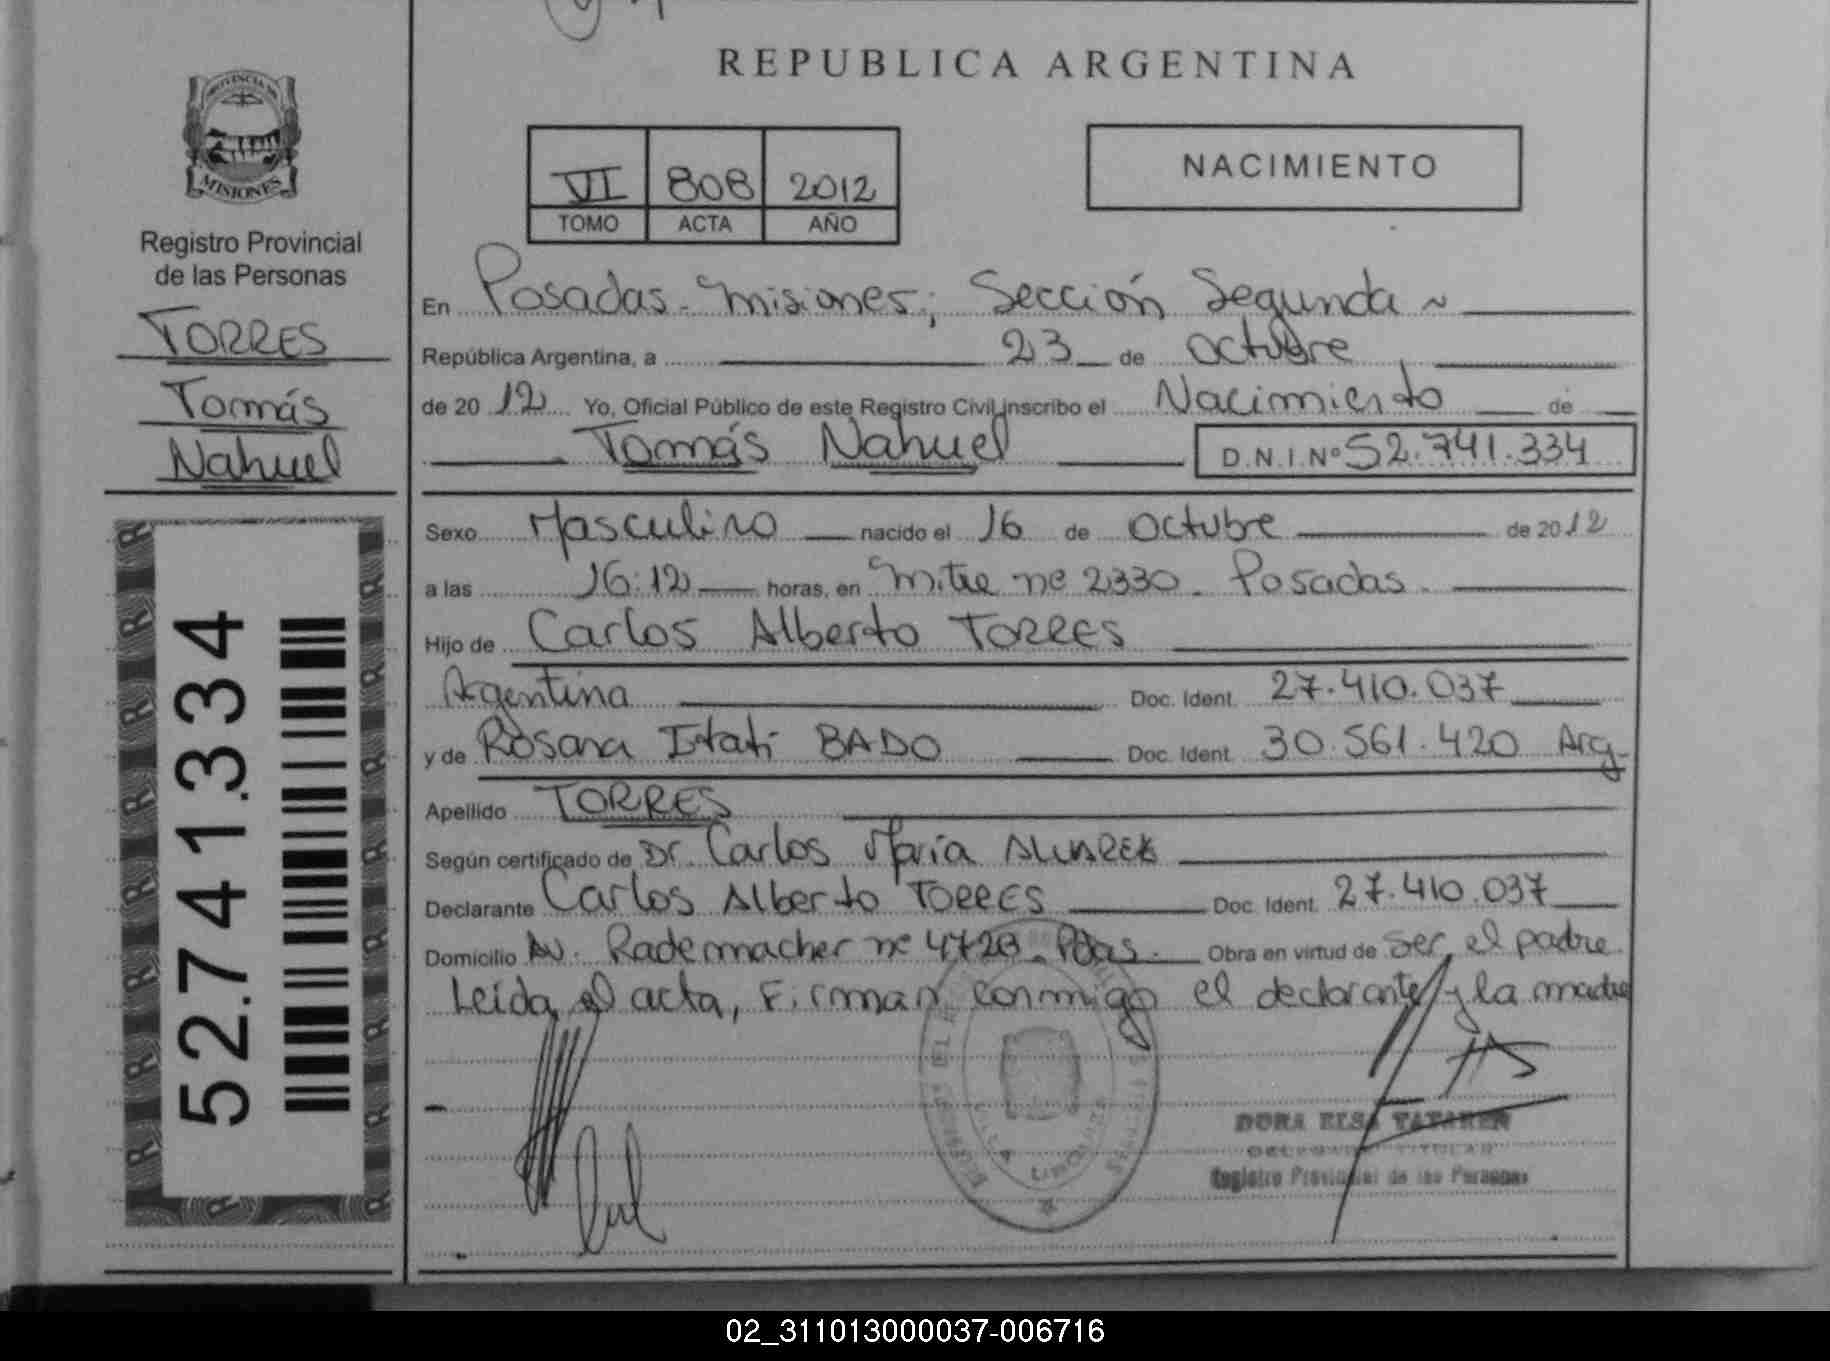 REPUBLICA ARGENTINA
PROVINCIA DE
MISIONES
Registro Provincial
de las Personas
TORRES
Tomás
Nahuel
52.741.334
VI 808 2012
TOMO ACTA AÑO
NACIMIENTO
En Posadas - Misiones; Sección Segunda ~
República Argentina, a 23 de octubre
de 2012 Yo, Oficial Público de este Registro Civil inscribo el Nacimiento de
Tomás Nahuel D.N.I.Nº 52.741.334
Sexo Masculino nacido el 16 de octubre de 2012
a las 16:12 horas, en Mitre nº 2330. Posadas.
Hijo de Carlos Alberto TORRES
Argentina Doc. Ident. 27.410.037
y de Rosana Itati BADO Doc. Ident. 30.561.420 Arg.
Apellido TORRES
Según certificado de Dr. Carlos María
Declarante Carlos Alberto TORRES Doc. Ident. 27.410.037
Domicilio Av. Rademacher nº 4720. Pdas. Obra en virtud de ser el padre.
Leída el acta, Firman conmigo el declarante y la madre
DORA ELSA
TITULAR
Registro Provincial de las Personas
02_311013000037-006716